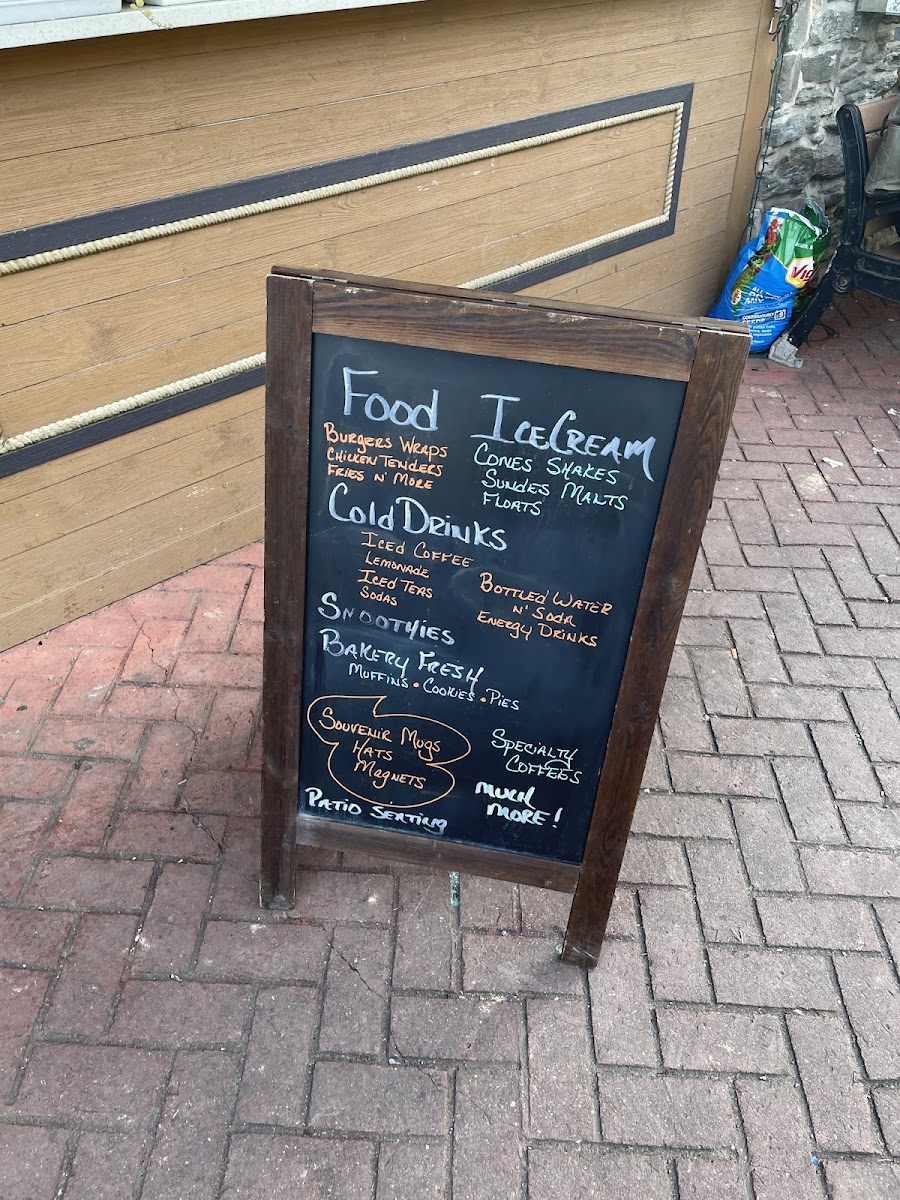 Food
Burgers Wraps
Chicken Tenders
Fries n' More
Ice Cream
Cones Shakes
Sundes Malts
Floats
Cold Drinks
Iced Coffee
Lemonade
Iced Teas
Sodas
Bottled Water
n' Soda
Energy Drinks
Smoothies
Bakery Fresh
Muffins • Cookies • Pies
Souvenir Mugs
Hats
Magnets
Specialty
Coffees
Patio Seating
Much
More!